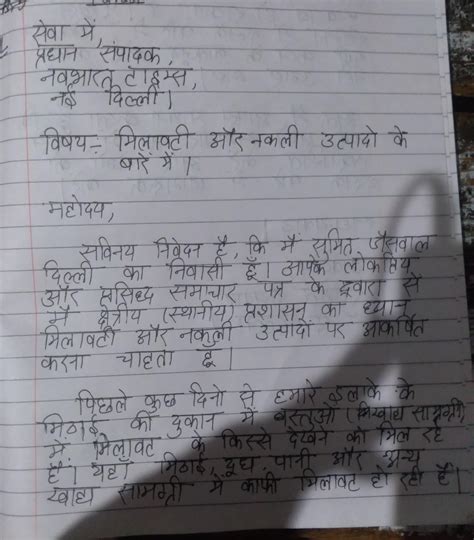 सेवा में,
प्रधान संपादक,
नवभारत टाइम्स,
नई दिल्ली।
विषय:- मिलावटी और नकली उत्पादो के
बारे में।
महोदय,
सविनय निवेदन है, कि मैं सुमित जैसवाल
दिल्ली का निवासी हूँ। आपके लोकप्रिय
और प्रसिध्द समाचार पत्र के द्वारा से
मैं क्षेत्रीय (स्थानीय) प्रशासन का ध्यान
मिलावटी और नकली उत्पादो पर आकर्षित
करना चाहता हूँ।
पिछले कुछ दिनो से हमारे इलाके के
मिठाई की दुकान में वस्तुओं सामग्री)
में मिलावट के किस्से देखने को मिल रहे
हैं। यहाँ मिठाई, दूध, पानी और अन्य
खाद्य सामग्री में काफी मिलावट हो रही है।